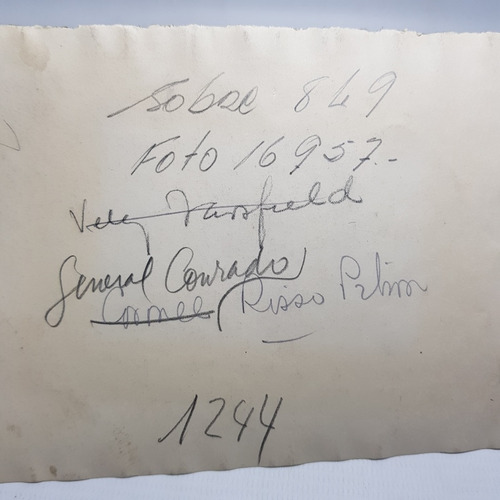 Sobre 849
Foto 16957.-
Velez Sarsfield
General Conrado
Coronel Risso Patron
1244